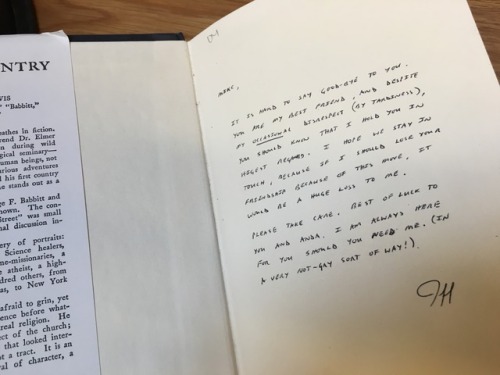 NTRY
WIS
" "Babbitt,"
eathes in fiction.
rend Dr. Elmer
n during wild
gical seminary—
uman beings, not
urious adventures
l his first country
e stands out as a
ge F. Babbitt and
nown. The con-
Street" was small
nal discussion in-
ery of portraits:
Science healers,
me-missionaries, a
e atheist, a high-
dred others, from
as, to New York
afraid to grin, yet
ence before what-
real religion. He
ect of the church;
that looked inter-
ot a tract. It is an
val of character, a
MARC,
IT IS HARD TO SAY GOOD-BYE TO YOU.
YOU ARE MY BEST FRIEND, AND DESPITE
MY OCCASIONAL DISRESPECT (BY TARDINESS),
YOU SHOULD KNOW THAT I HOLD YOU IN
HIGEST REGARD. I HOPE WE STAY IN
TOUCH, BECAUSE IF I SHOULD LOSE YOUR
FRIENDSHIP BECAUSE OF THIS MOVE, IT
WOULD BE A HUGE LOSS TO ME.
PLEASE TAKE CARE. BEST OF LUCK TO
YOU AND ANDA. I AM ALWAYS HERE
FOR YOU SHOULD YOU NEED ME. (IN
A VERY NOT-GAY SORT OF WAY!).
JH